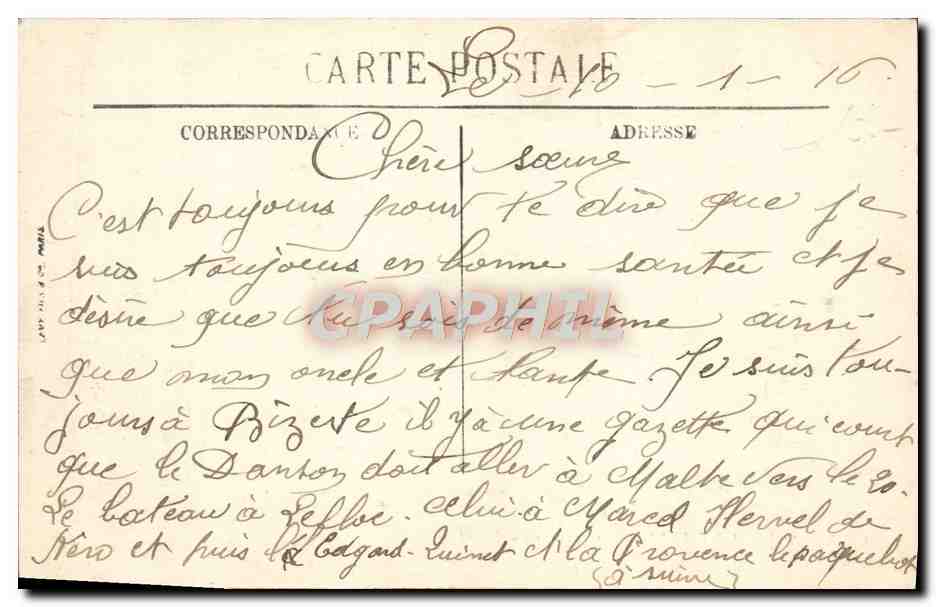 CARTE POSTALE
Le 10 - 1 - 16
CORRESPONDANCE
ADRESSE
Chère sœure
C'est toujours pour te dire que je
suis toujours en bonne santée et je
désire que tu sois de même ainsi
que mon oncle et tante. Je suis tou-
jours à Bizerte il y à une gazette qui court
que le Danton doit aller à Malte vers le 20.
Le bateau à Lefloc. celui à Marcel Hervel de
Kéro et puis le Edgard-Quinet et la Provence le paquebot
(à suivre)
LEVY FILS & Cie PARIS
CPAPHIL